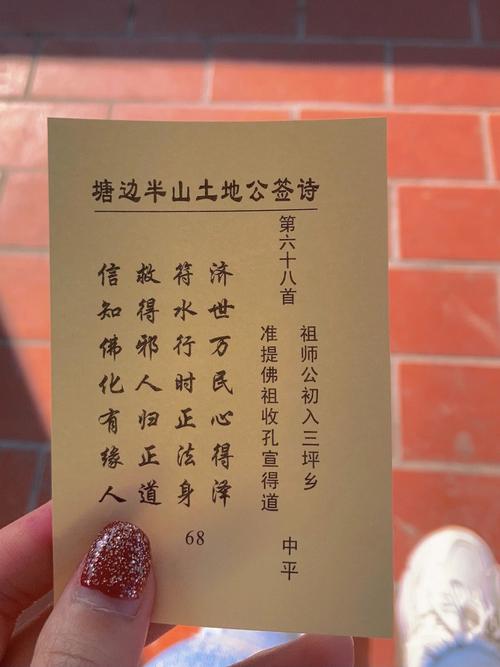 塘边半山土地公签诗
第六十八首
祖师公初入三坪乡
准提佛祖收孔宣得道
中平
济世万民心得泽
符水行时正法身
救得邪人归正道
信知佛化有缘人
68